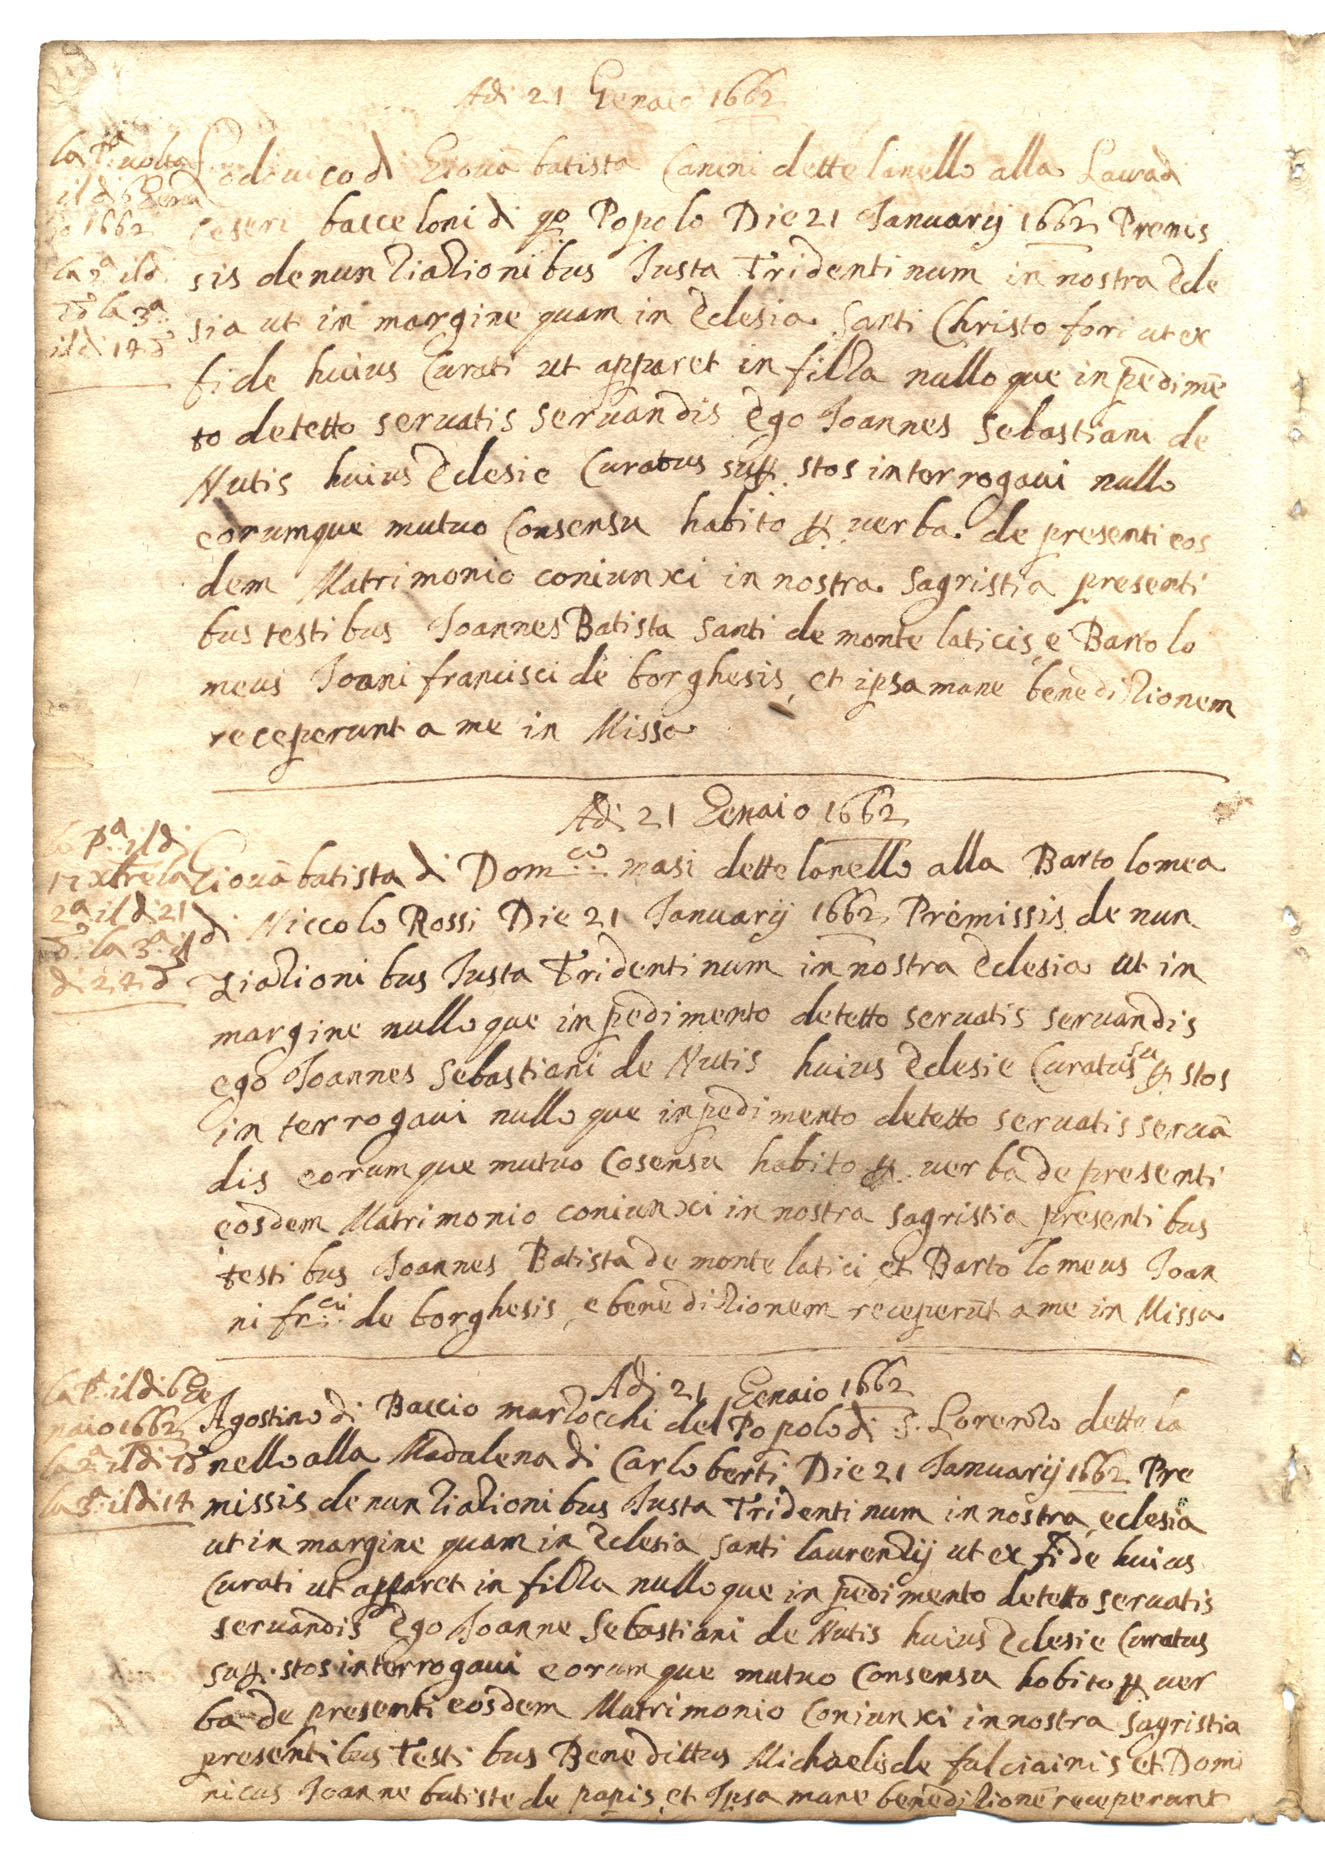 Adi 21 Genaio 1662
la p.a uolta
il di 6 Gena
io 1662
la 2.a il d.
la 3.a
il di 14 d.o
Lodouico di Giouã batista Canini dette lanello alla Laura di
Ceseri bacceloni di qo Popolo Die 21 January 1662 Premis
sis denunziazionibus Iusta Tridentinum in nostra Ecle
sia ut in margine quam in Eclesia Santi Christofori ut ex
fide huius Curati ut apparet in filza nulloque inpedimẽ
to detetto seruatis seruandis Ego Ioannes Sebastiani de
Nutis huius Eclesie Curatus sup. stos interrogaui nullo
eorumque mutuo Consensu habito p. uerba de presenti eos
dem Matrimonio coniunxi in nostra Sagristia presenti
bus testibus Ioannes Batista Santi de monte laticis e Bartolo
meus Ioani francisci de borghesis, et ipsa mane benedizionem
receperunt a me in Missa
Adi 21 Genaio 1662
la p.a il di
la
2.a il di 21
d.o la 3.a il
di 24 d.o
Giouãbatista di Dom.co masi dette lanello alla Bartolomea
di Niccolo Rossi Die 21 January 1662 Premissis denun
ziazionibus Iusta Tridentinum in nostra Eclesia ut in
margine nulloque inpedimento detetto seruatis seruandis
ego Ioannes Sebastiani de Nutis huius Eclesie Curatus su p. stos
interrogaui nulloque inpedimento detetto seruatis seruã
dis eorumque mutuo Cosensu habito p. uerba de presenti
eosdem Matrimonio coniunxi in nostra sagristia presentibus
testibus Ioannes Batista de monte latici et Bartolomeus Ioan
ni fr.cii de borghesis, e benedizionem receperũt a me in Missa
Adi 21 Genaio 1662
la p.a il di 6 Ge
naio 1662
la 2.a il di
la 3.a il di 14
Agostino di Baccio marzocchi del Popolo di S. Lorenzo dette la
nello alla Madalena di Carlo berti Die 21 January 1662 Pre
missis denunziazionibus Iusta Tridentinum in nostra eclesia
ut in margine quam in Eclesia Santi laurenzij ut ex fide huius
Curati ut apparet in filza nulloque inpedimento detetto seruatis
seruandis Ego Ioanne Sebastiani de Nutis huius Eclesie Curatus
sup. stos interrogaui eorumque mutuo Consensu habito p. uer
ba de presenti eosdem Matrimonio Coniunxi in nostra Sagristia
presentibus Testibus Benedittus Michaelis de fulciainis et Domi
nicus Ioanne batiste de papis et Ipsa mane benedizionẽ receperunt